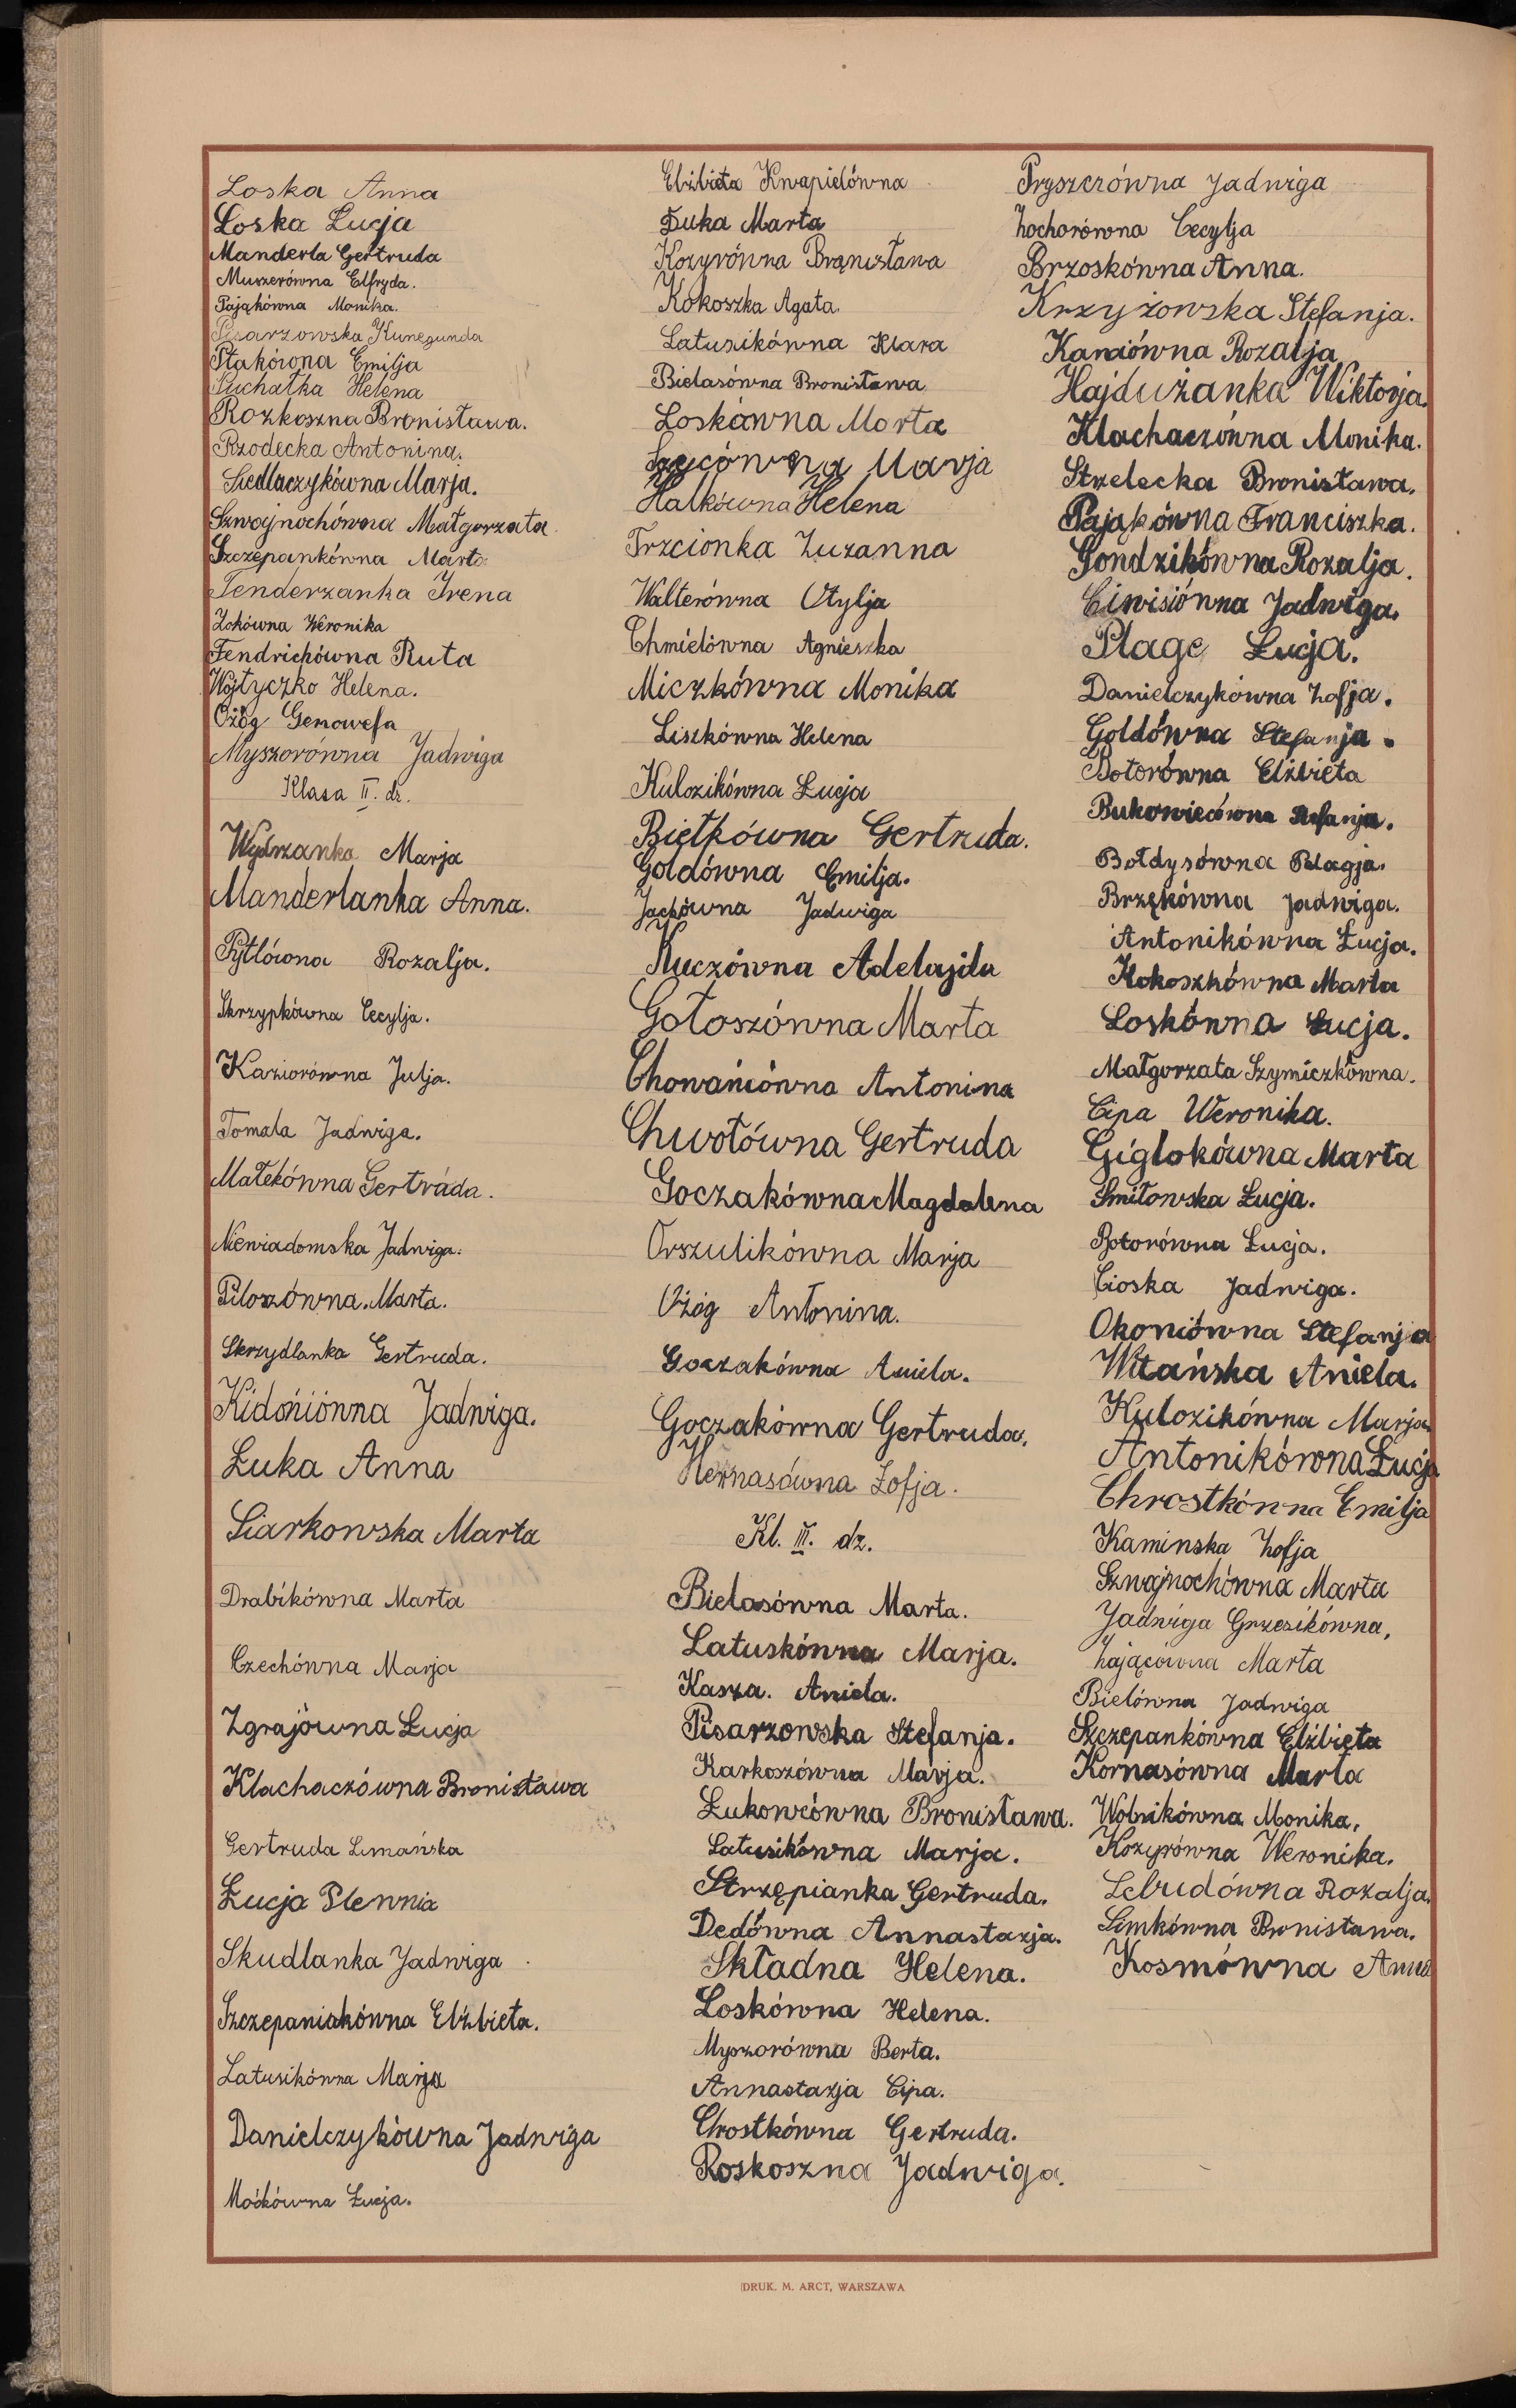 Loska Anna
Loska Łucja
Manderla Gertruda
Muszerówna Elfryda.
Pająkówna Monika.
Pisarzowska Kunegunda
Ptakówna Emilja
Puchałka Helena
Rozkoszna Bronisława.
Rzodecka Antonina.
Siedlaczykówna Marja.
Szwajnochówna Małgorzata.
Szczepankówna Marta
Tenderzanka Irena
Zokówna Weronika
Fendrichówna Ruta
Wojtyczko Helena.
Ożóg Genowefa
Myszorówna Jadwiga
Klasa II. dz.
Wydrzanka Marja
Manderlanka Anna.
Pytlówna Rozalja.
Skrzypkówna Cecylja.
Kaziorówna Julja.
Tomala Jadwiga.
Małekówna Gertruda.
Niewiadomska Jadwiga.
Piloszówna. Marta.
Skrzydlanka Gertruda.
Kidońiówna Jadwiga.
Łuka Anna
Siarkowska Marta
Drabikówna Marta
Czechówna Marja
Zgrajówna Łucja
Klachaczówna Bronisława
Gertruda Limańska
Łucja Plewnia
Skudlanka Jadwiga
Szczepaniakówna Elżbieta.
Latusikówna Marja
Danielczykówna Jadwiga
Moćkówna Łucja.
Elżbieta Kwapielówna
Duka Marta
Kozyrówna Bronisława
Kokoszka Agata.
Latusikówna Klara
Bielasówna Bronisława
Loskówna Marta
Marja
Halkówna Helena
Trzcionka Zuzanna
Walterówna Otylja
Chmielówna Agnieszka
Miczkówna Monika
Liszkówna Helena
Kulozikówna Łucja
Bietkówna Gertruda.
Goldówna Emilja.
Jackówna Jadwiga
Kuczówna Adelajda
Gołoszówna Marta
Chowańiówna Antonina
Chwołówna Gertruda
Goczakówna Magdalena
Orszulikówna Marja
Ożóg Antonina.
Goczakówna Aniela.
Goczakówna Gertruda.
Hernasówna Zofja.
Kl. III. dz.
Bielasówna Marta.
Latuskówna Marja.
Kasza. Aniela.
Pisarzowska Stefanja.
Karkoszówna Marja.
Łukowcówna Bronisława.
Latusikówna Marja.
Strzępianka Gertruda.
Dedówna Annastazja.
Składna Helena.
Loskówna Helena.
Myszorówna Berta.
Annastazja Cipa.
Chrostkówna Gertruda.
Roskoszna Jadwiga.
Pryszczówna Jadwiga
Zochorówna Cecylja
Brzoskówna Anna.
Krzyżowska Stefanja.
Kaniówna Rozalja
Hajdużanka Wiktorja.
Klachaczówna Monika.
Strzelecka Bronisława.
Pająkówna Franciszka.
Gondzikówna Rozalja.
Ciwisiówna Jadwiga.
Plage Łucja.
Danielczykówna Zofja.
Goldówna Stefanja.
Botorówna Elżbieta
Bukowiecówna Stefanja.
Bołdysówna Pelagja.
Brzękówna Jadwiga.
Antonikówna Łucja.
Kokoszkówna Marta
Loskówna Łucja.
Małgorzata Szymiczkówna.
Cipa Weronika.
Giglokówna Marta
Smiłowska Łucja.
Botorówna Łucja.
Cioska Jadwiga.
Okoniówna Stefanja
Witańska Aniela.
Kulozikówna Marja.
Antonikówna Łucja
Chrostkówna Emilja
Kaminska Zofja
Szwajnochówna Marta
Jadwiga Grzesikówna,
Zającówna Marta
Bielówna Jadwiga
Szczepankówna Elżbieta
Kornasówna Marta
Wobnikówna Monika,
Kozyrówna Weronika.
Lebudówna Rozalja.
Simkówna Bronisława.
Kosmówna Anna
DRUK. M. ARCT, WARSZAWA